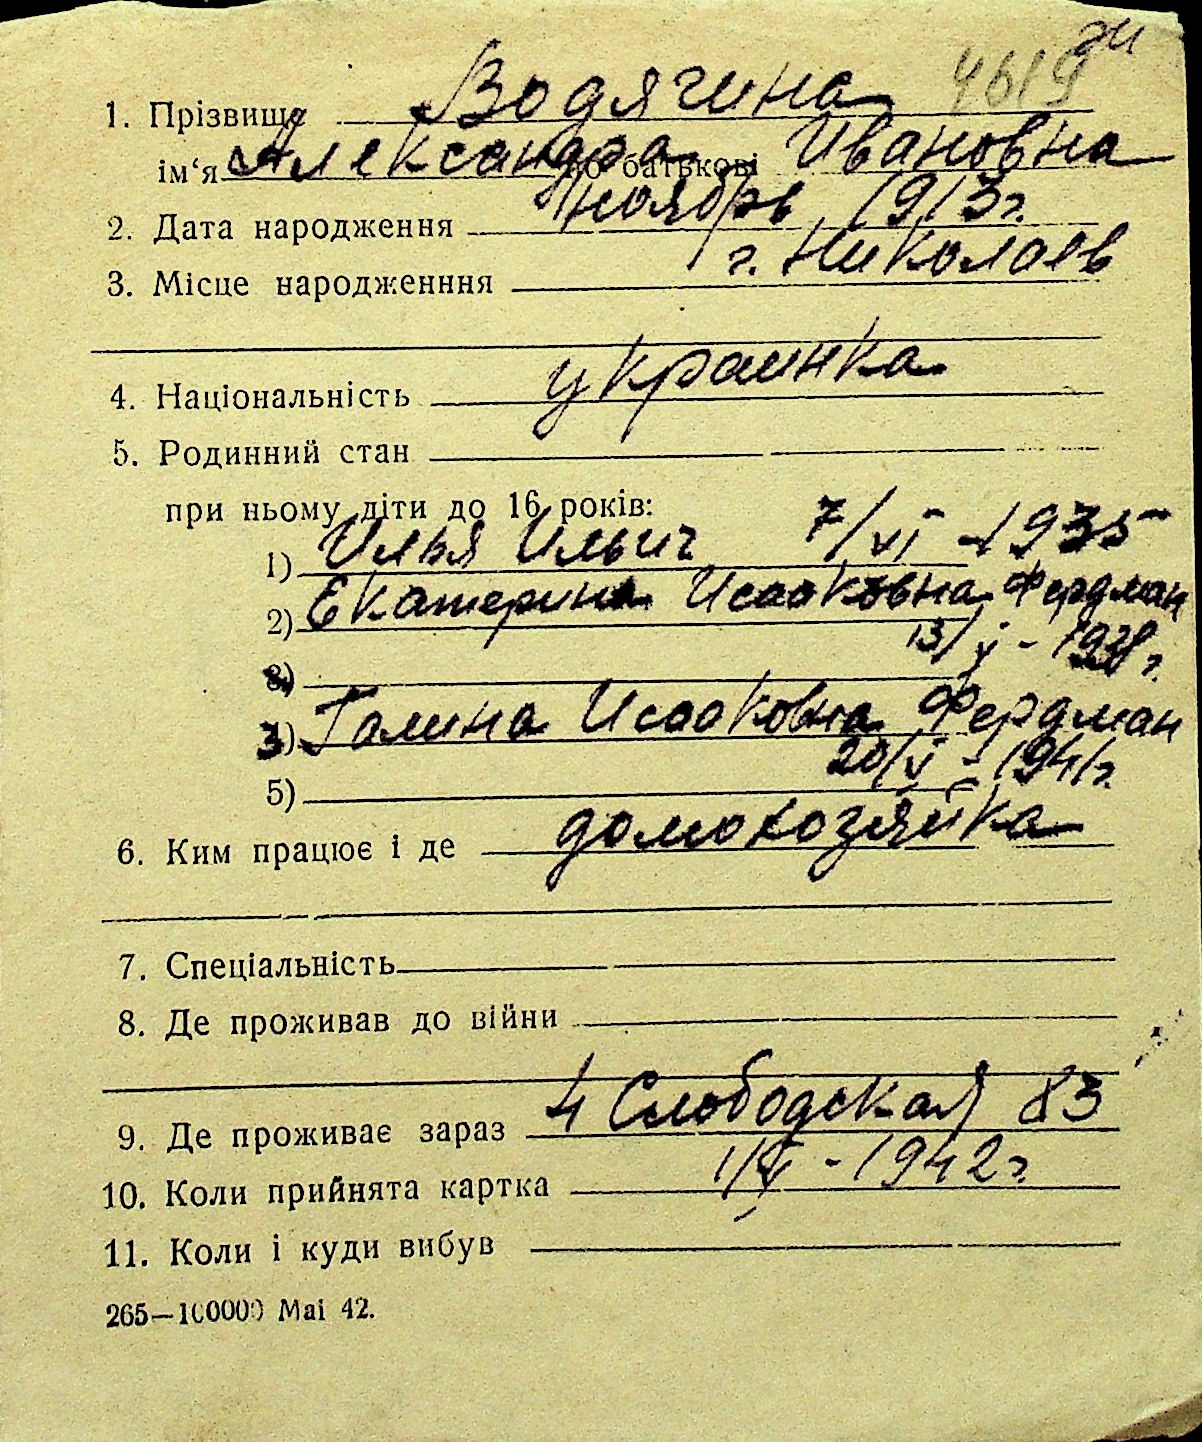 4619
1. Прізвище Водягина
ім‘я Александра по батькові Ивановна
2. Дата народження ноябрь 1913г.
3. Місце народженння г. Николаев
4. Національність украинка
5. Родинний стан
при ньому діти до 16 років:
1) Илья Ильич 7/VI - 1935
2) Екатерина Исааковна Фердман
13/V - 1938г.
3)
3) Галина Исааковна Фердман
20/V - 1941г.
5)
6. Ким працює і де домохозяйка
7. Спеціальність
8. Де проживав до війни
9. Де проживає зараз 4 Слободская 83
10. Коли прийнята картка 1/X - 1942г.
11. Коли і куди вибув
265—100000 Mai 42.